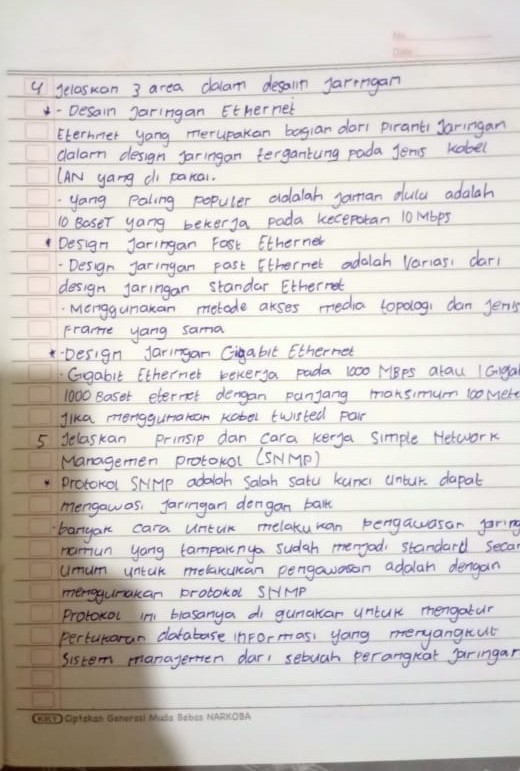 No.
Date
4 Jelaskan 3 area dalam desain Jaringan
* - Desain Jaringan Ethernet
Eterhnet yang merupakan bagian dari piranti Jaringan
dalam design Jaringan tergantung pada Jenis kabel
LAN yang di pakai.
- yang Paling populer adalah jaman dulu adalah
10 BaseT yang bekerja pada kecepatan 10 Mbps
* Design Jaringan Fast Ethernet
- Design Jaringan Fast Ethernet adalah Variasi dari
design Jaringan Standar Ethernet
- Menggunakan metode akses media topologi dan Jenis
Frame yang sama
* - Design Jaringan Gigabit Ethernet
- Gigabit Ethernet bekerja pada 1000 MBps atau 1 Gigab
1000 Baset eternet dengan panjang maksimum 100 Mete
Jika menggunakan kabel twisted pair
5 Jelaskan Prinsip dan cara kerja Simple Network
Managemen Protokol (SNMP)
* Protokol SNMP adalah Salah satu kunci untuk dapat
mengawasi Jaringan dengan baik
- banyak cara untuk melakukan pengawasan jaring
namun yang tampaknya sudah menjadi standard Secar
Umum untuk melakukan pengawasan adalah dengan
menggunakan protokol SNMP
Protokol ini biasanya di gunakan untuk mengatur
Pertukaran database informasi yang menyangkut
Sistem manajemen dari sebuah perangkat jaringan
KKY Ciptakan Generasi Muda Bebas NARKOBA